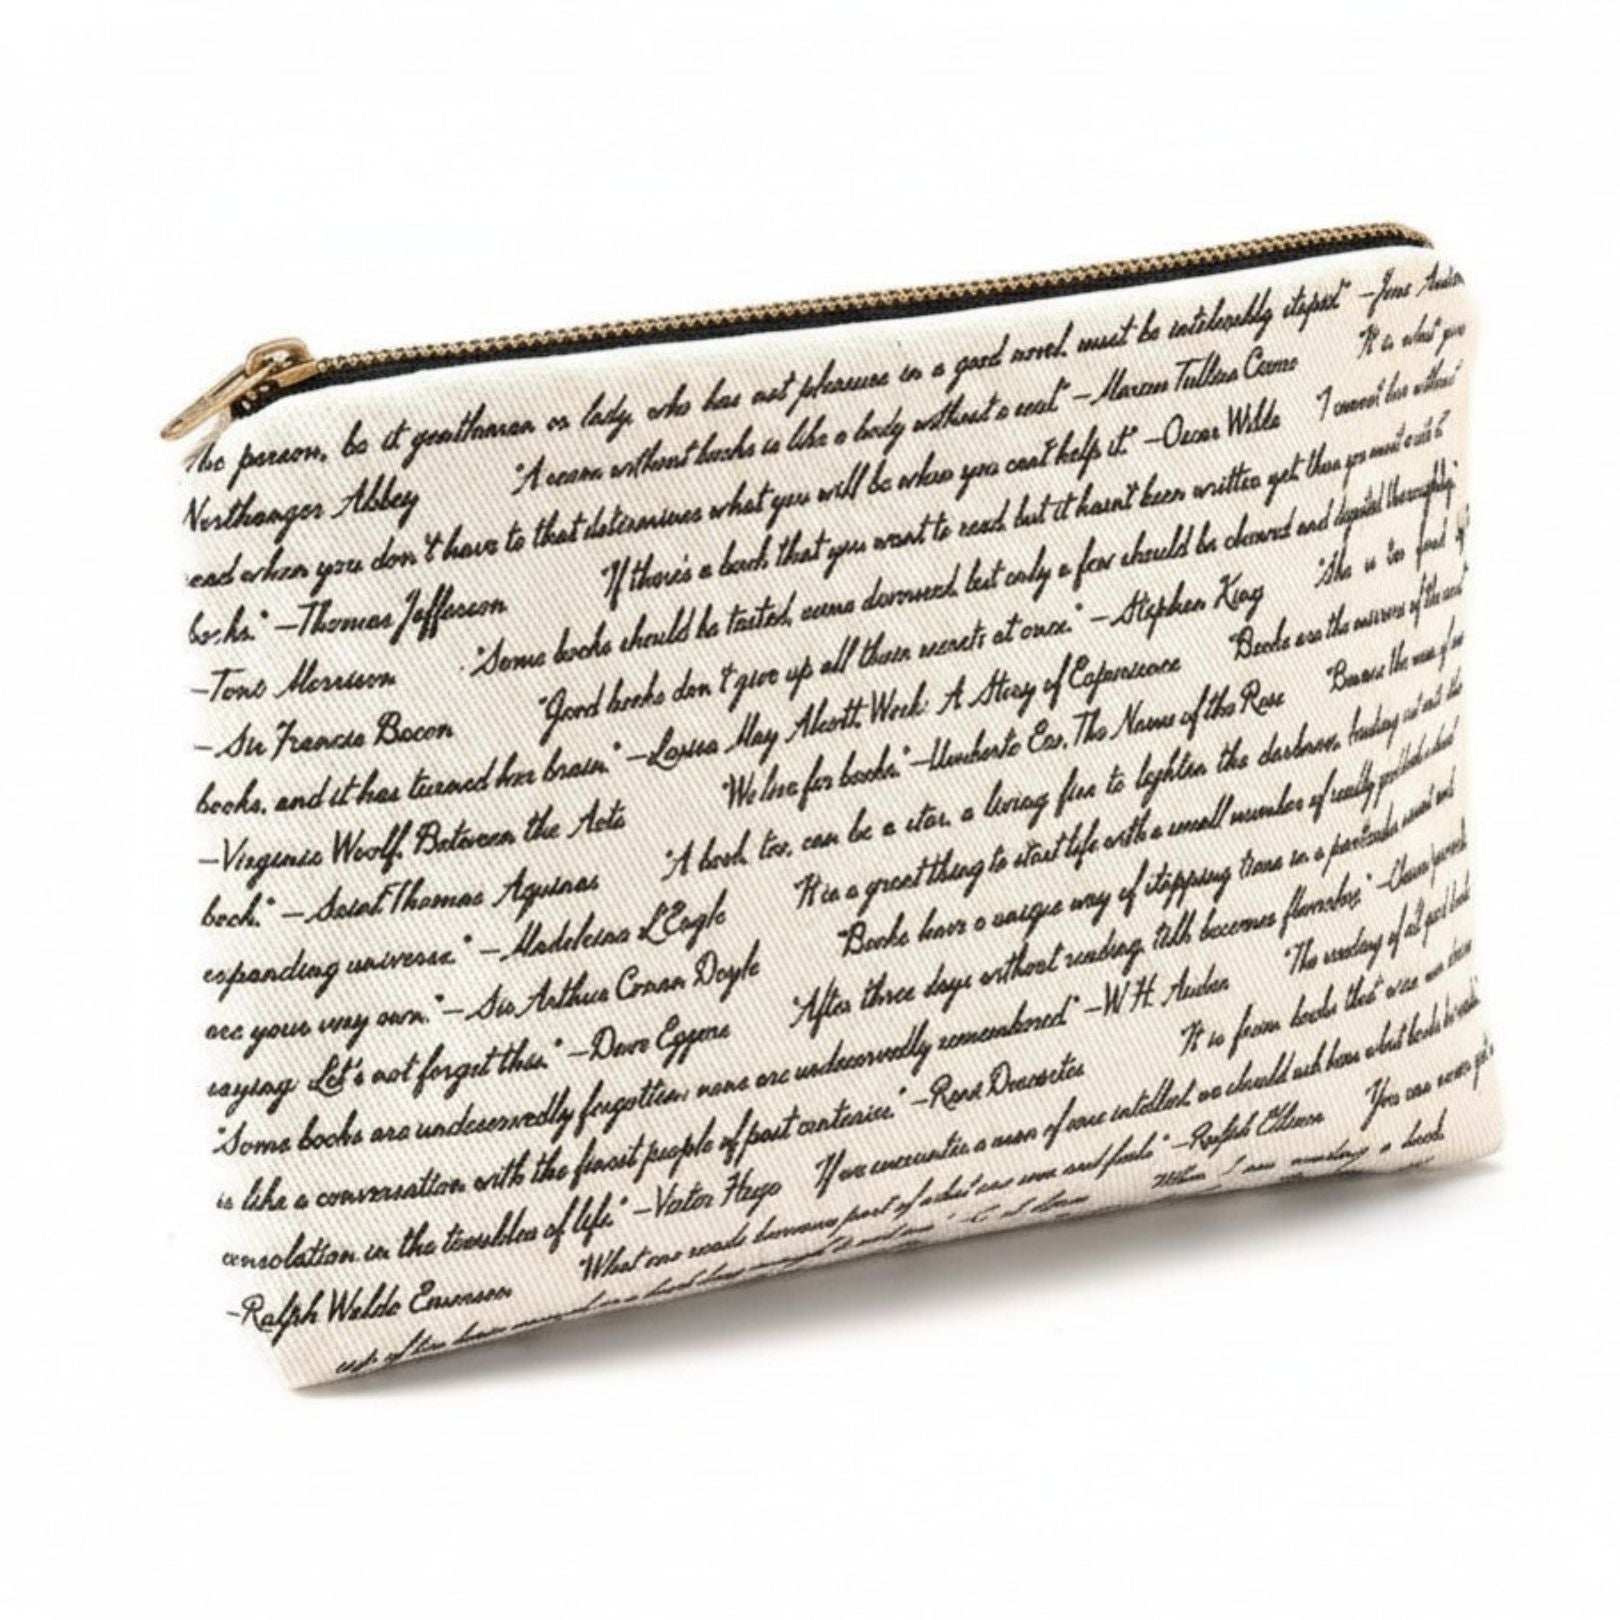 The person, be it gentleman or lady, who has not pleasure in a good novel, must be intolerably stupid" –Jane Austen
Northanger Abbey "A room without books is like a body without a soul" –Marcus Tullius Cicero It is what you
read when you don't have to that determines what you will be when you can't help it." –Oscar Wilde I cannot live without
books." –Thomas Jefferson "If there's a book that you want to read but it hasn't been written yet then you must write it
–Toni Morrison "Some books should be tasted, some devoured, but only a few should be chewed and digested thoroughly.
–Sir Francis Bacon "Good books don't give up all their secrets at once." –Stephen King "She is too fond of
books, and it has turned her brain." –Louisa May Alcott Work: A Story of Experience "Books are the mirrors of the soul
–Virginia Woolf, Between the Acts "We live for books." –Umberto Eco, The Name of the Rose "Beware the man of one
book." –Saint Thomas Aquinas "A book, too, can be a star, a living fire to lighten the darkness, leading out into the
expanding universe." –Madeleine L'Engle It is a great thing to start life with a small number of really good books which
are your very own." –Sir Arthur Conan Doyle "Books have a unique way of stopping time in a particular moment and
saying Let's not forget this." –Dave Eggers "After three days without reading, talk becomes flavorless." –Chinese proverb
"Some books are undeservedly forgotten; none are undeservedly remembered" –W.H. Auden "The reading of all good books
is like a conversation with the finest people of past centuries." –René Descartes It is from books that wise men derive
consolation in the troubles of life." –Victor Hugo If we encounter a man of rare intellect, we should ask him what books he reads
–Ralph Waldo Emerson "What one reads becomes part of what one sees and feels." –Ralph Ellison You can never get a
When I am reading a book